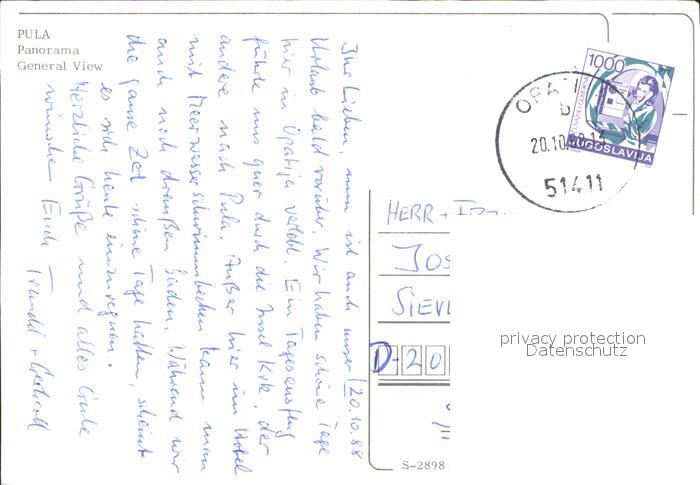 PULA
Panorama
General View
1000
JUGOSLAVIJA
OPATI
b
20.10.88-13
51411
20.10.88
Ihr Lieben, nun ist auch unser
Urlaub bald vorüber. Wir haben schöne Tage
hier in Opatija verlebt. Ein Tagesausflug
führte uns quer durch die Insel Krk, der
andere nach Pula. Außer hier im Hotel
mit Meerwasserschwimmbecken kann man
auch noch draußen baden. Während wir
die ganze Zeit schöne Tage hatten, scheint
es sich heute einzuregnen.
Herzliche Grüße und alles Gute
wünschen Euch
HERR +
JOS
SIEV
D-20
S-2898
privacy protection
Datenschutz